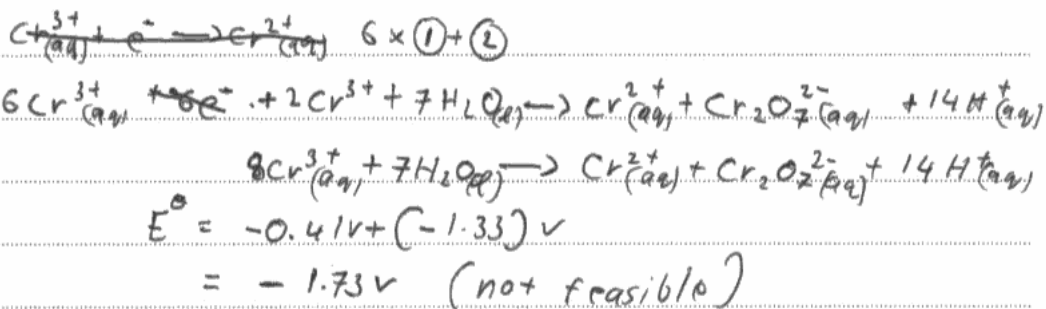 Cr³⁺(aq) + e⁻ → Cr²⁺(aq) 6 × ① + ②
6Cr³⁺(aq) + 6e⁻ . + 2Cr³⁺ + 7H₂O(l) → Cr²⁺(aq) + Cr₂O₇²⁻(aq) + 14H⁺(aq)
8Cr³⁺(aq) + 7H₂O(l) → Cr²⁺(aq) + Cr₂O₇²⁻(aq) + 14H⁺(aq)
E° = -0.41v + (-1.33) v
= - 1.73 v (not feasible)